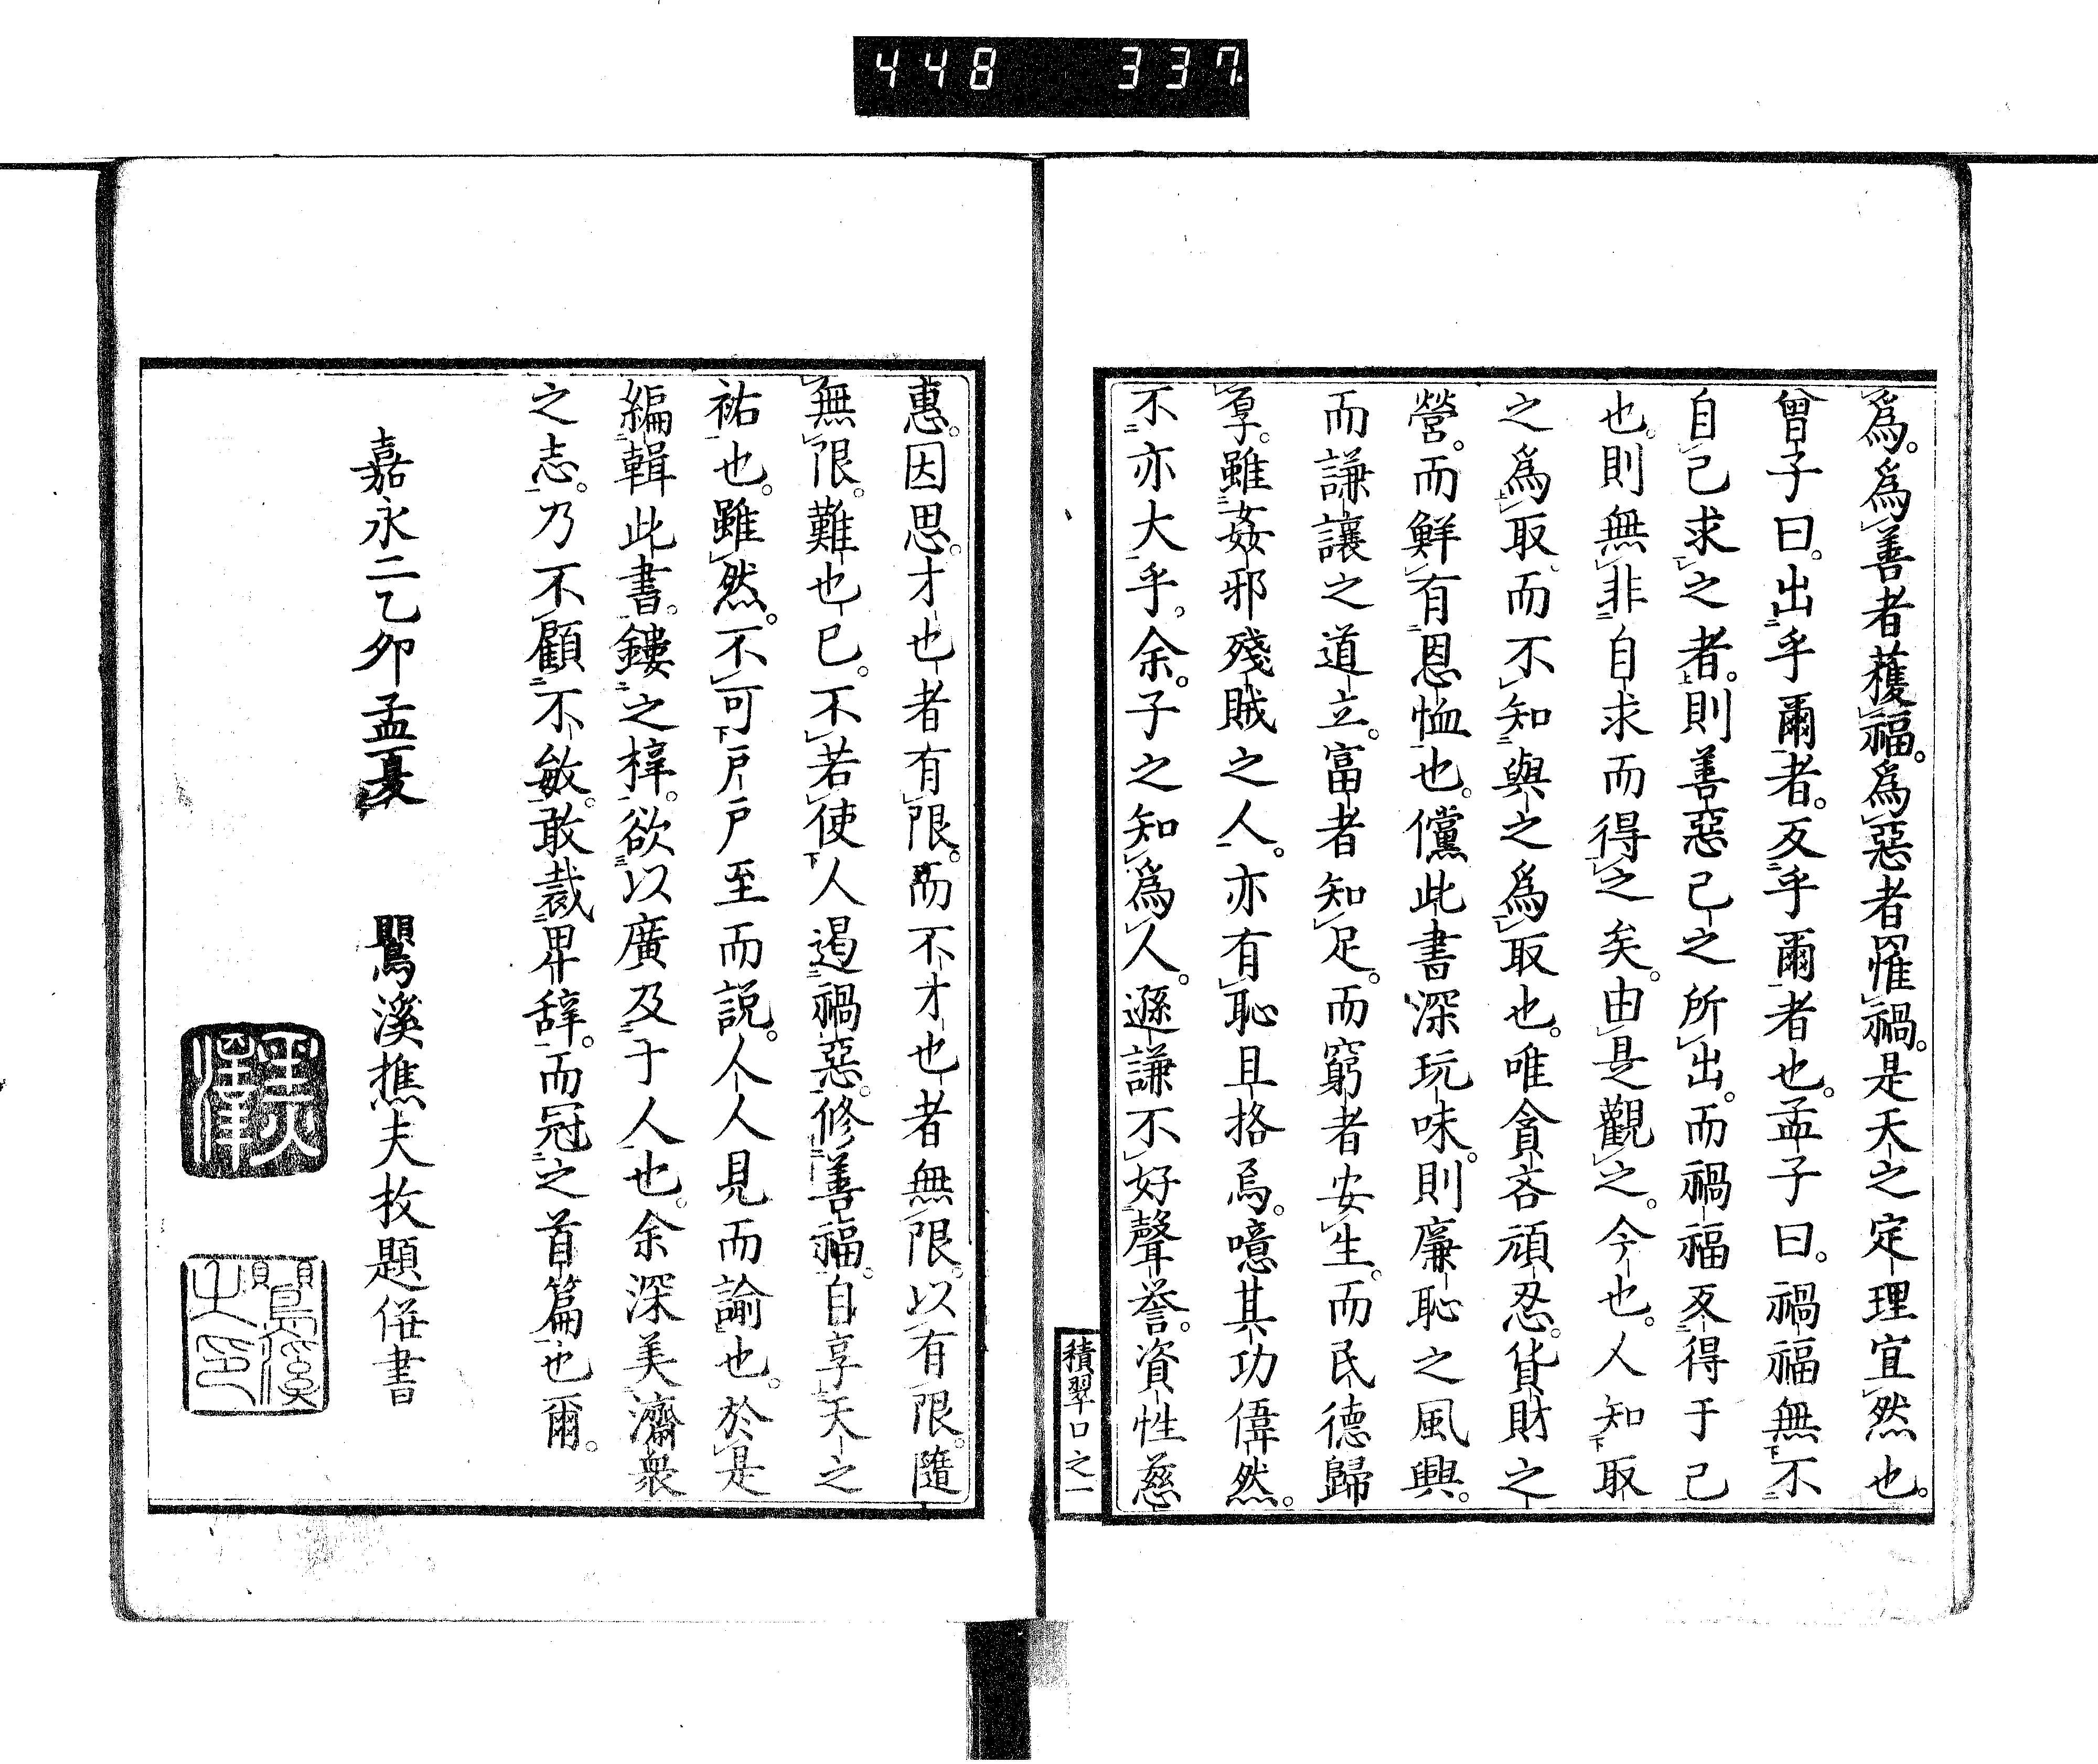 448 337
爲。爲善者獲福。爲惡者罹禍。是天之定理宜然也。
曾子曰。出乎爾者。反乎爾者也。孟子曰。禍福無不
自己求之者。則善惡己之所出。而禍福反得于己
也。則無非自求而得之矣。由是觀之。今也。人知取
之爲取。而不知與之爲取也。唯貪吝頑忍。貨財之
營。而鮮有恩恤也。儻此書深玩味。則廉恥之風興。
而謙讓之道立。富者知足。而窮者安生。而民德歸
厚。雖姦邪殘賊之人。亦有恥且格焉。噫其功偉然。
不亦大乎。余。子之知爲人。遜謙不好聲誉。資性慈
積翠口之一
惠。因思。才也者有限。而不才也者無限。以有限。隨
無限。難也已。不若使人遏禍惡。修善福。自享天之
祐也。雖然。不可戸戸至而説。人人見而諭也。於是
編輯此書。鏤之梓。欲以廣及于人也。余深美濟衆
之志。乃不顧不敏。敢裁卑辞。而冠之首篇也爾。
嘉永二乙卯孟夏 鸎溪樵夫枚題併書
鸎溪之印